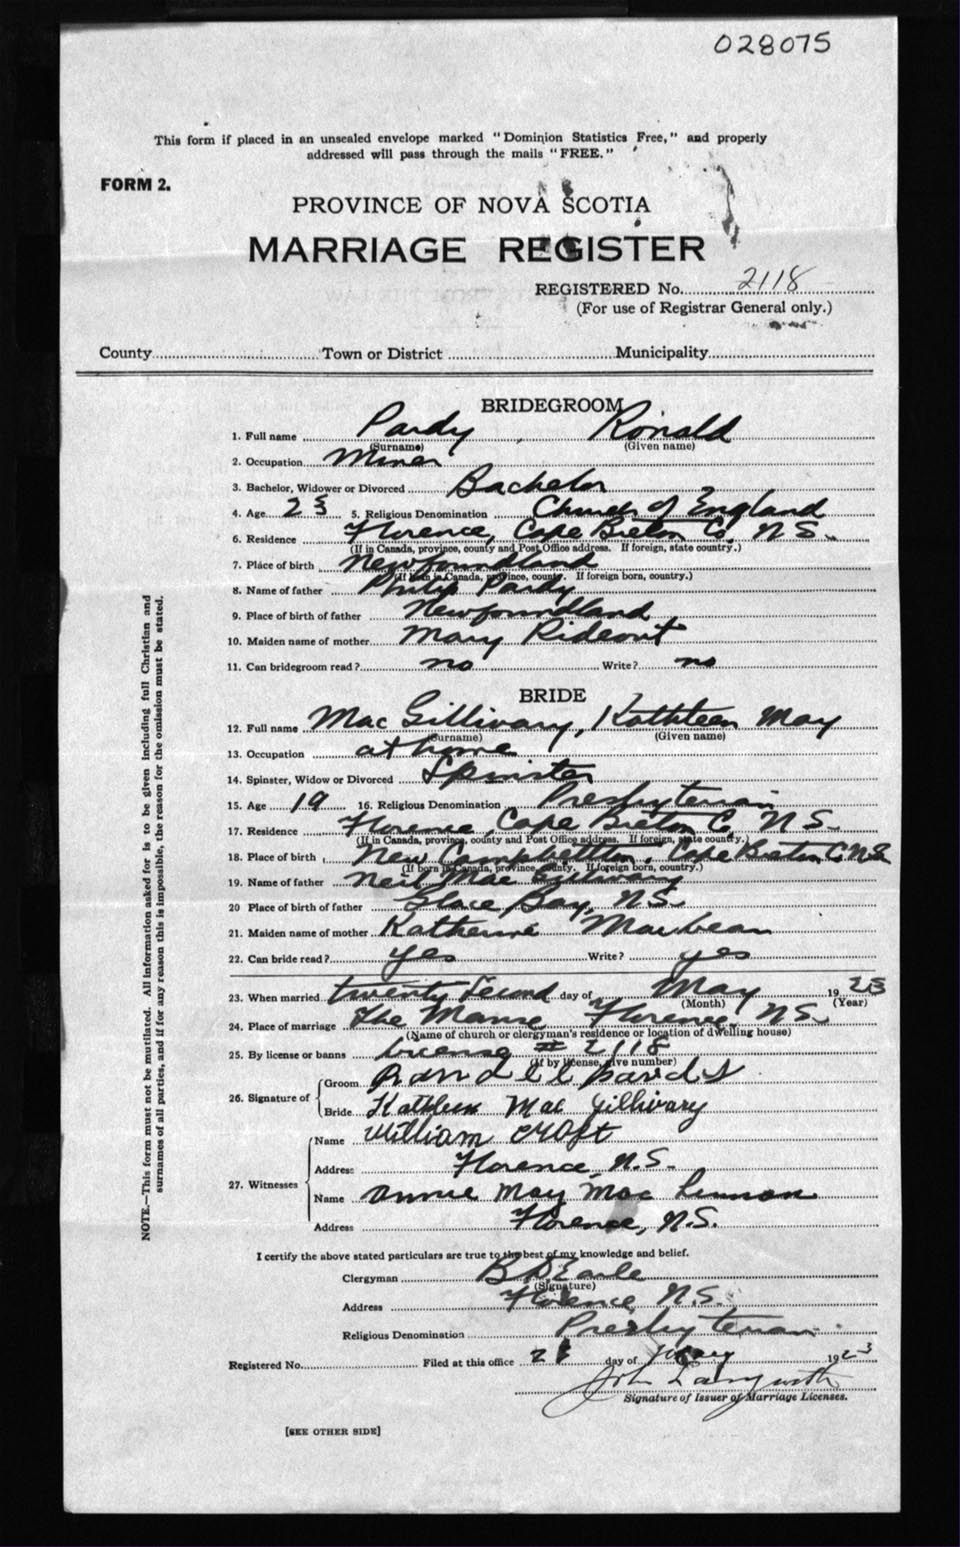 028075
This form if placed in an unsealed envelope marked "Dominion Statistics Free," and properly
addressed will pass through the mails "FREE."
FORM 2.
PROVINCE OF NOVA SCOTIA
MARRIAGE REGISTER
REGISTERED No. 2118
(For use of Registrar General only.)
County Town or District Municipality
BRIDEGROOM
1. Full name Pardy, Ronald
(Surname) (Given name)
2. Occupation Miner
3. Bachelor, Widower or Divorced Bachelor
4. Age 5. Religious Denomination Church of England
6. Residence Florence, Cape Breton Co. N.S.
(If in Canada, province, county and Post Office address. If foreign, state country.)
7. Place of birth Newfoundland
(If born in Canada, province, county. If foreign born, country.)
8. Name of father Philip Pardy
9. Place of birth of father Newfoundland
10. Maiden name of mother Mary Rideout
11. Can bridegroom read? no Write? no
BRIDE
12. Full name Mac Gillivary, Kathleen May
(Surname) (Given name)
13. Occupation at home
14. Spinster, Widow or Divorced Spinster
15. Age 19 16. Religious Denomination Presbyterian
17. Residence Florence, Cape Breton Co. N.S.
(If in Canada, province, county and Post Office address. If foreign, state country.)
18. Place of birth New Campbellton, Cape Breton Co N.S.
(If born in Canada, province, county. If foreign born, country.)
19. Name of father Neil Mac Gillivary
20 Place of birth of father Glace Bay, N.S.
21. Maiden name of mother Katherine
22. Can bride read? yes Write? yes
23. When married twenty second day of May 1923
(Month) (Year)
24. Place of marriage The Manse Florence, N.S.
(Name of church or clergyman's residence or location of dwelling house)
25. By license or banns License # 2118
(If by license, give number)
26. Signature of Groom
Bride Kathleen Mac Gillivary
27. Witnesses Name William Croft
Address Florence, N.S.
Name Annie May Mac Lennan
Address Florence, N.S.
I certify the above stated particulars are true to the best of my knowledge and belief.
Clergyman B D Earle
(Signature)
Address Florence N.S.
Religious Denomination Presbyterian
Registered No. Filed at this office day of May 1923
John
Signature of Issuer of Marriage Licenses.
[SEE OTHER SIDE]
NOTE.—This form must not be mutilated. All information asked for is to be given including full Christian and
surnames of all parties, and if for any reason this is impossible, the reason for the omission must be stated.